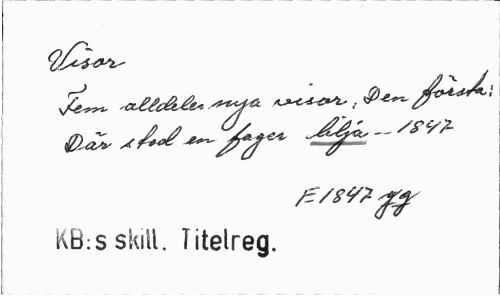 Visor
Fem alldeles nya visor, Den första:
Där stod en fager lilja -- 1847
E 1847 yg
KB:s skill. Titelreg.